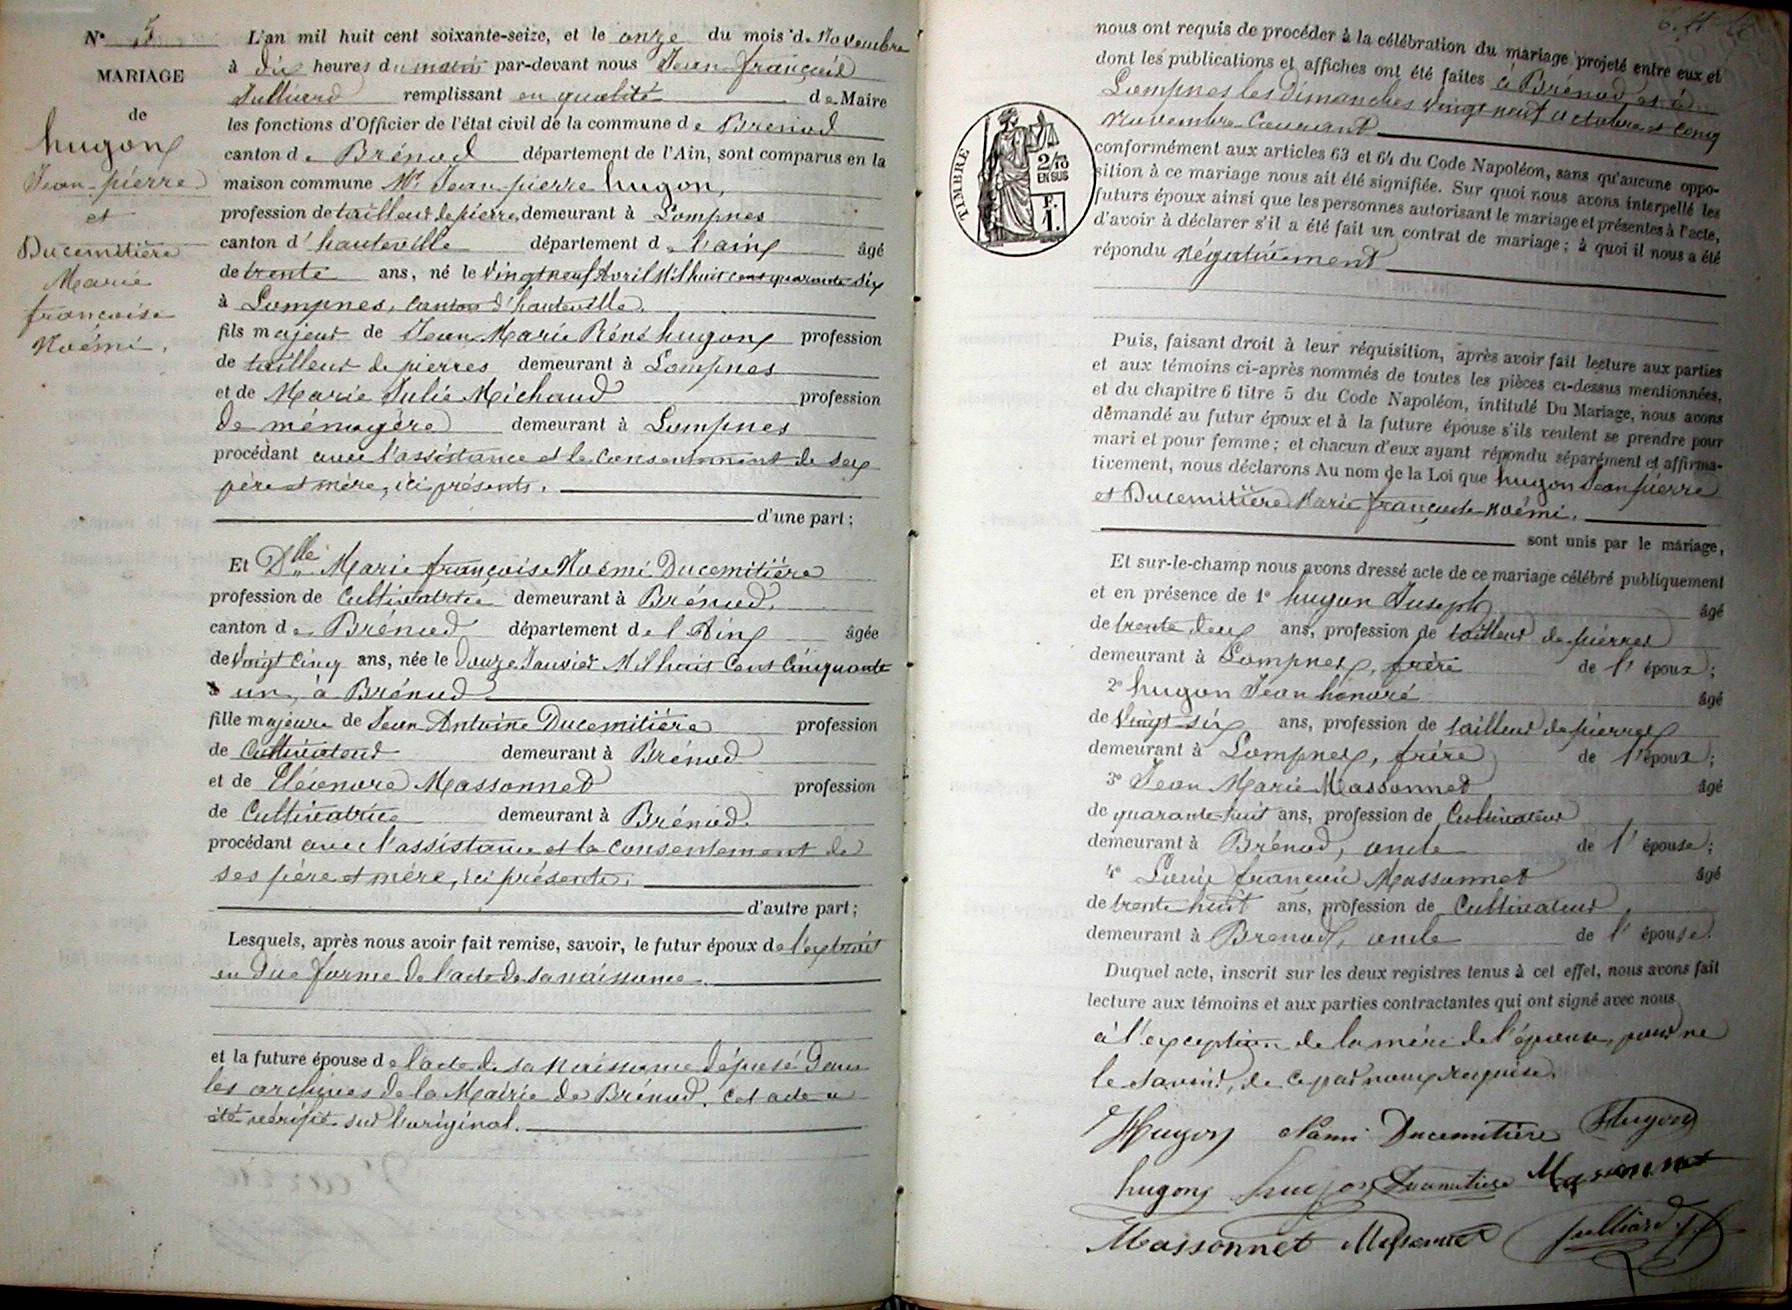 N° 5
MARIAGE
de
hugon
Jean-pierre
et
Ducemetière
Marie
françoise
Noémi.
L'an mil huit cent soixante-seize, et le onze du mois de Novembre
à dix heures du matin par-devant nous Jean françois
Julliard remplissant en qualité de Maire
les fonctions d'Officier de l'état civil de la commune de Brénod
canton de Brénod département de l'Ain, sont comparus en la
maison commune Mr Jean-pierre hugon,
profession de tailleur de pierre, demeurant à Lompnes
canton d'hauteville département de l'ain âgé
de trente ans, né le Vingt neuf Avril Mil huit cent quarante-six
à Lompnes, canton d'hauteville.
fils majeur de Jean Marie Réné hugon profession
de tailleur de pierres demeurant à Lompnes
et de Marie Julie Michaud profession
de ménagère demeurant à Lompnes
procédant avec l'assistance et le consentement de ses
père et mère, ici présents.
d'une part ;
Et Dlle Marie françoise Noémi Ducemetière
profession de Cultivatrice demeurant à Brénod.
canton de Brénod département de l'Ain âgée
de Vingt cinq ans, née le Douze Janvier Mil huit Cent Cinquante
un, à Brénod
fille majeure de Jean Antoine Ducemetière profession
de Cultivateur demeurant à Brénod
et de Eléonore Massonnet profession
de Cultivatrice demeurant à Brénod.
procédant avec l'assistance et le consentement de
ses père et mère, ici présents.
d'autre part ;
Lesquels, après nous avoir fait remise, savoir, le futur époux de l'extrait
en due forme de l'acte de sa naissance.
et la future épouse de l'acte de sa naissance déposé dans
les archives de la Mairie de Brénod. Cet acte a
été vérifié sur l'original.
nous ont requis de procéder à la célébration du mariage projeté entre eux et
dont les publications et affiches ont été faites à Brénod et à
Lompnes les dimanches vingt neuf octobre et cinq
Novembre Courant
TIMBRE
2/10
EN SUS
F.
1.
conformément aux articles 63 et 64 du Code Napoléon, sans qu'aucune oppo-
sition à ce mariage nous ait été signifiée. Sur quoi nous avons interpellé les
futurs époux ainsi que les personnes autorisant le mariage et présentes à l'acte,
d'avoir à déclarer s'il a été fait un contrat de mariage ; à quoi il nous a été
répondu Négativement
Puis, faisant droit à leur réquisition, après avoir fait lecture aux parties
et aux témoins ci-après nommés de toutes les pièces ci-dessus mentionnées,
et du chapitre 6 titre 5 du Code Napoléon, intitulé Du Mariage, nous avons
demandé au futur époux et à la future épouse s'ils veulent se prendre pour
mari et pour femme ; et chacun d'eux ayant répondu séparément et affirma-
tivement, nous déclarons Au nom de la Loi que hugon Jean pierre
et Ducemetière Marie françoise Noémi.
sont unis par le mariage,
Et sur-le-champ nous avons dressé acte de ce mariage célébré publiquement
et en présence de 1° hugon Joseph âgé
de trente deux ans, profession de tailleur de pierres
demeurant à Lompnes, frère de l'époux ;
2° hugon Jean honoré âgé
de Vingt-six ans, profession de tailleur de pierres
demeurant à Lompnes, frère de l'époux ;
3° Jean Marie Massonnet âgé
de quarante-huit ans, profession de Cultivateur
demeurant à Brénod, oncle de l'épouse ;
4° Louis françois Massonnet âgé
de trente huit ans, profession de Cultivateur
demeurant à Brénod, oncle de l'épouse.
Duquel acte, inscrit sur les deux registres tenus à cet effet, nous avons fait
lecture aux témoins et aux parties contractantes qui ont signé avec nous
à l'exception de la mère de l'épouse, pour ne
le savoir, de ce par nous requise.
Hugon Ducemetière Hugon
hugon hugon Ducemetière Massonnet
Massonnet Massonnet Julliard